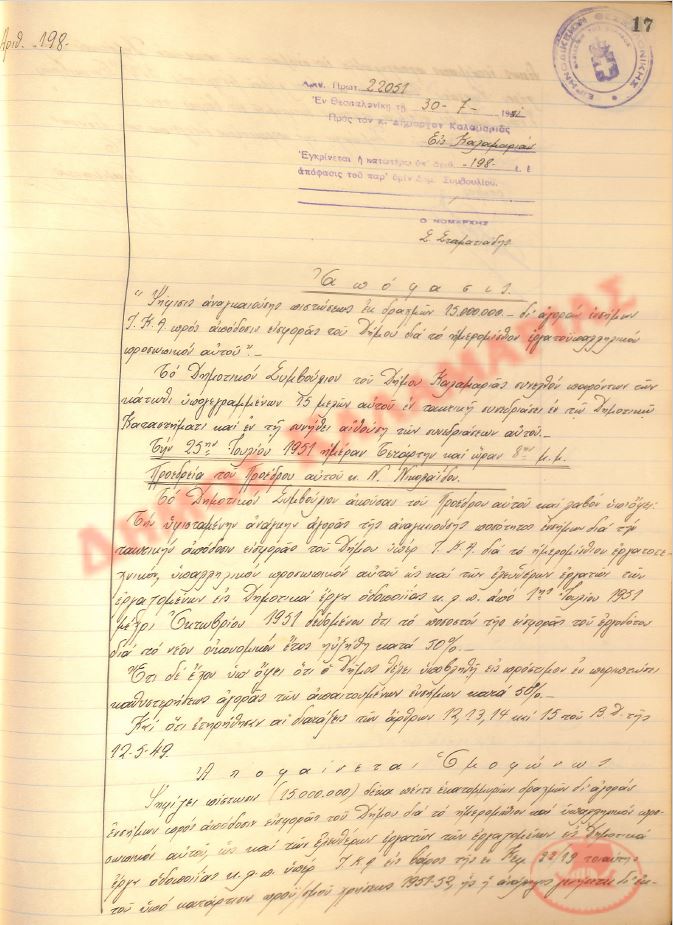 17
Αριθ. -198-
ΕΙΡΗΝΟΔΙΚΕΙΟΝ ΘΕΣΣΑΛΟΝΙΚΗΣ
Αριν. Πρωτ. 22051
Ἐν Θεσσαλονίκῃ τῇ 30-7- 1951
Πρὸς τὸν κ. Δήμαρχον Καλαμαριᾶς
Εἰς Καλαμαριάν
Ἐγκρίνεται ἡ κατωτέρω ὑπ' ἀριθ. -198- ἐ. ἔ
ἀπόφασις τοῦ παρ' ὑμῖν Δημ. Συμβουλίου.
Ο ΝΟΜΑΡΧΗΣ
Σ. Σταματιάδης
Ἀπόφασις.
"Ψήφισις ἀναγκαιούσης πιστώσεως ἐκ δραχμῶν 15.000.000.- δι' ἀγορὰν ἐνσήμων
Ι.Κ.Α πρὸς ἀπόδοσιν εἰσφορᾶς τοῦ Δήμου διὰ τὸ ἡμερομίσθιον ἐργατοϋπαλληλικὸν
προσωπικὸν αὐτοῦ".-
Τὸ Δημοτικὸν Συμβούλιον τοῦ Δήμου Καλαμαριᾶς συνελθὸν παρόντων τῶν
κάτωθι ὑπογεγραμμένων 15 μελῶν αὐτοῦ ἐν τακτικῇ συνεδριάσει ἐν τῷ Δημοτικῷ
Καταστήματι καὶ ἐν τῇ συνήθει αἰθούσῃ τῶν συνεδριάσεων αὐτοῦ.-
Τὴν 25ην Ἰουλίου 1951 ἡμέραν Τετάρτην καὶ ὥραν 8ην μ.μ.
Προεδρεία τοῦ Προέδρου αὐτοῦ κ. Ν. Νικολαΐδου.
Τὸ Δημοτικὸν Συμβούλιον ἀκοῦσαν τοῦ Προέδρου αὐτοῦ καὶ λαβὸν ὑπ' ὄψει:
Τὴν ὑφισταμένην ἀνάγκην ἀγορᾶς τῆς ἀναγκαιούσης ποσότητος ἐνσήμων διὰ τὴν
τακτικὴν ἀπόδοσιν εἰσφορᾶς τοῦ Δήμου ὑπὲρ Ι.Κ.Α. διὰ τὸ ἡμερομίσθιον ἐργατοτε-
χνικὸν, ὑπαλληλικὸν προσωπικὸν αὐτοῦ ὡς καὶ τῶν ἐλευθέρων ἐργατῶν τῶν
ἐργαζομένων εἰς Δημοτικὰ ἔργα ὁδοποιΐας κ.λ.π. ἀπὸ 1ης Ἰουλίου 1951
μέχρι Ὀκτωβρίου 1951 δεδομένου ὅτι τὸ ποσοστὸν τῆς εἰσφορᾶς τοῦ ἐργοδότου
διὰ τὸ νέον οἰκονομικὸν ἔτος ηὐξήθη κατὰ 50%.-
Ἔτι δὲ ἔχον ὑπ' ὄψει ὅτι ὁ Δῆμος θέλει ὑποβληθῇ εἰς πρόστιμον ἐν περιπτώσει
καθυστερήσεως ἀγορᾶς τῶν ἀπαιτουμένων ἐνσήμων κατὰ 50%.-
Καὶ ὅτι ἐτηρήθησαν αἱ διατάξεις τῶν ἄρθρων 12, 13, 14 καὶ 15 τοῦ Β.Δ. τῆς
12-5-49.
Ἀποφαίνεται Ὁμοφώνως
Ψηφίζει πίστωσιν (15.000.000) δέκα πέντε ἑκατομμυρίων δραχμῶν δι' ἀγορὰν
ἐνσήμων πρὸς ἀπόδοσιν εἰσφορᾶς τοῦ Δήμου διὰ τὸ ἡμερομίσθιον καὶ ὑπαλληλικὸν προ-
σωπικὸν αὐτοῦ, ὡς καὶ τῶν ἐλευθέρων ἐργατῶν τῶν ἐργαζομένων εἰς Δημοτικὰ
ἔργα ὁδοποιΐας κ.λ.π. ὑπὲρ Ι.Κ.Α εἰς βάρος τῆς ἐν Κεφ.
τοῦ ὑπὸ κατάρτισιν προϋ/σμοῦ χρήσεως 1951-52, ἧς ἡ
ΔΗΜΟΣ ΚΑΛΑΜΑΡΙΑΣ